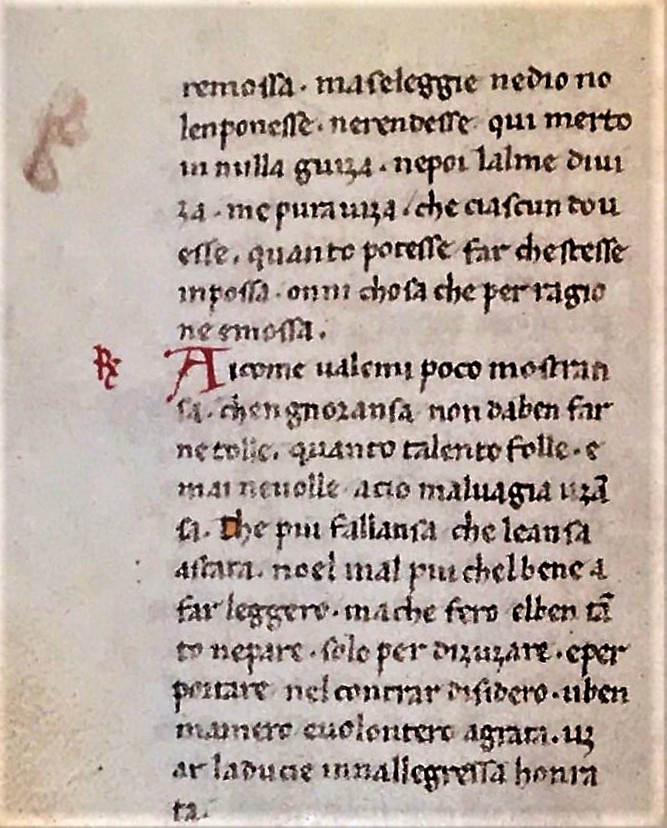 remossa. maseleggie nedio no
lenponesse. nerendesse qui merto
in nulla guiza. nepoi lalme diui
za. me pura uiza. che ciascun dou
esse. quanto potesse far chestesse
inpossa. onni chosa che per ragio
ne emossa.
R Aicome ualemi poco mostran
sa. chengnoransa non daben far
ne tolle. quanto talento folle. e
mai neuolle acio maluagia uzā
sa. Che piu fallansa che leansa
astata. noel mal piu chelbene a
far leggero. ma che fero elben tā
to nepare. solo per dizuzare. eper
portare nel contrar disidero. uben
mainero euolontero agrata. uz
ar laducie innallegressa honra
ta.